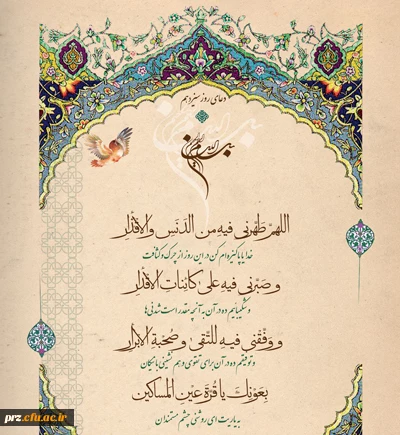 دعای روز سیزدهم
بسم الله الرحمن الرحیم
اللهمّ طَهّرنی فیهِ مِن الدّنَسِ والأقْذار
خدایا پاکیزه‌ام کن در این روز از چرک و کثافت
وصَبّرنی فیهِ علی کائِناتِ الأقْدار
و شکیباییم ده در آن به آنچه مقدر است شدنی‌ها
ووَفّقنی فیهِ للتّقی وصُحْبةِ الأبْرار
و توفیقم ده در آن برای تقوی و هم نشینی با نیکان
بِعَوْنِكَ یا قُرّةَ عیْن المَساكین
به یاریت ای روشنی چشم مستمندان
prz.cfu.ac.ir